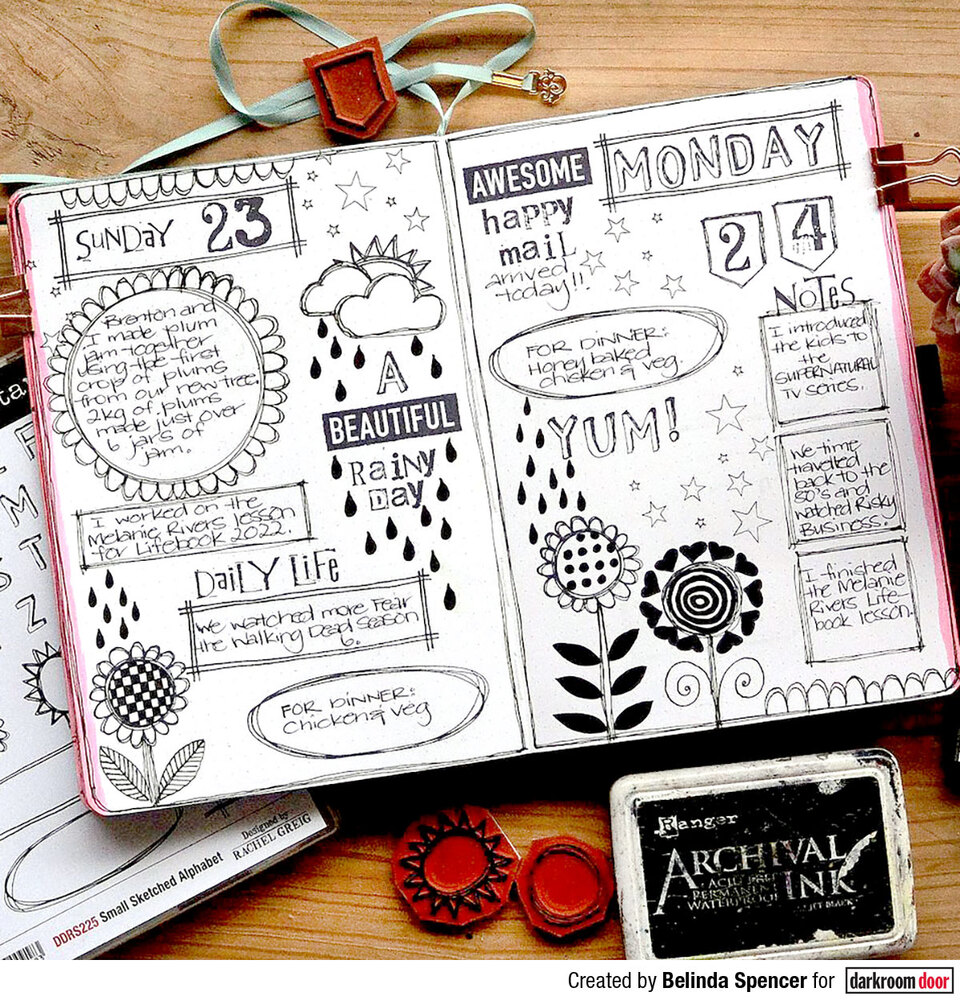 SUNDAY 23
Brenton and
I made plum
jam together
using the first
crop of plums
from our new tree.
2kg of plums
made just over
6 jars of
jam.
A
BEAUTIFUL
RAINY
DAY
I worked on the
Melanie Rivers lesson
for Lifebook 2022.
DAILY LIFE
We watched more Fear
the Walking Dead Season
6.
FOR DINNER:
Chicken & Veg
AWESOME
happy
mail
arrived
today!!
MONDAY
24
FOR DINNER:
Honey baked
chicken & veg.
YUM!
NOTES
I introduced
the kids to
the
SUPERNATURAL
TV SERIES.
We time
travelled
back to the
80's and
watched Risky
Business.
I finished
the Melanie
Rivers Life-
book lesson.
Designed by
RACHEL GREIG
DDRS225 Small Sketched Alphabet
Ranger
ARCHIVAL
INK
ACID FREE
PERMANENT
WATERPROOF
JET BLACK
Created by Belinda Spencer for darkroom door